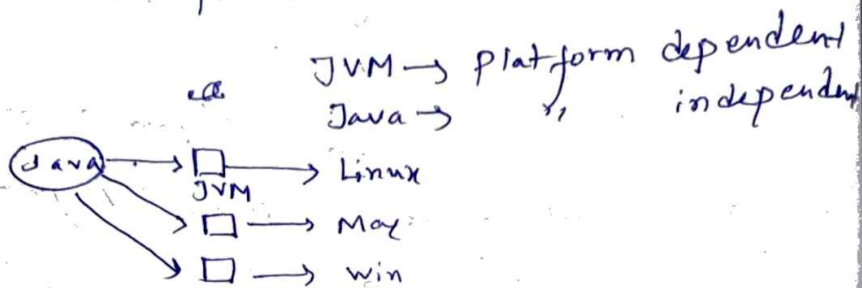 JVM → Platform dependent
Java → " independent
Java → → Linux
JVM
→ Mac
→ Win